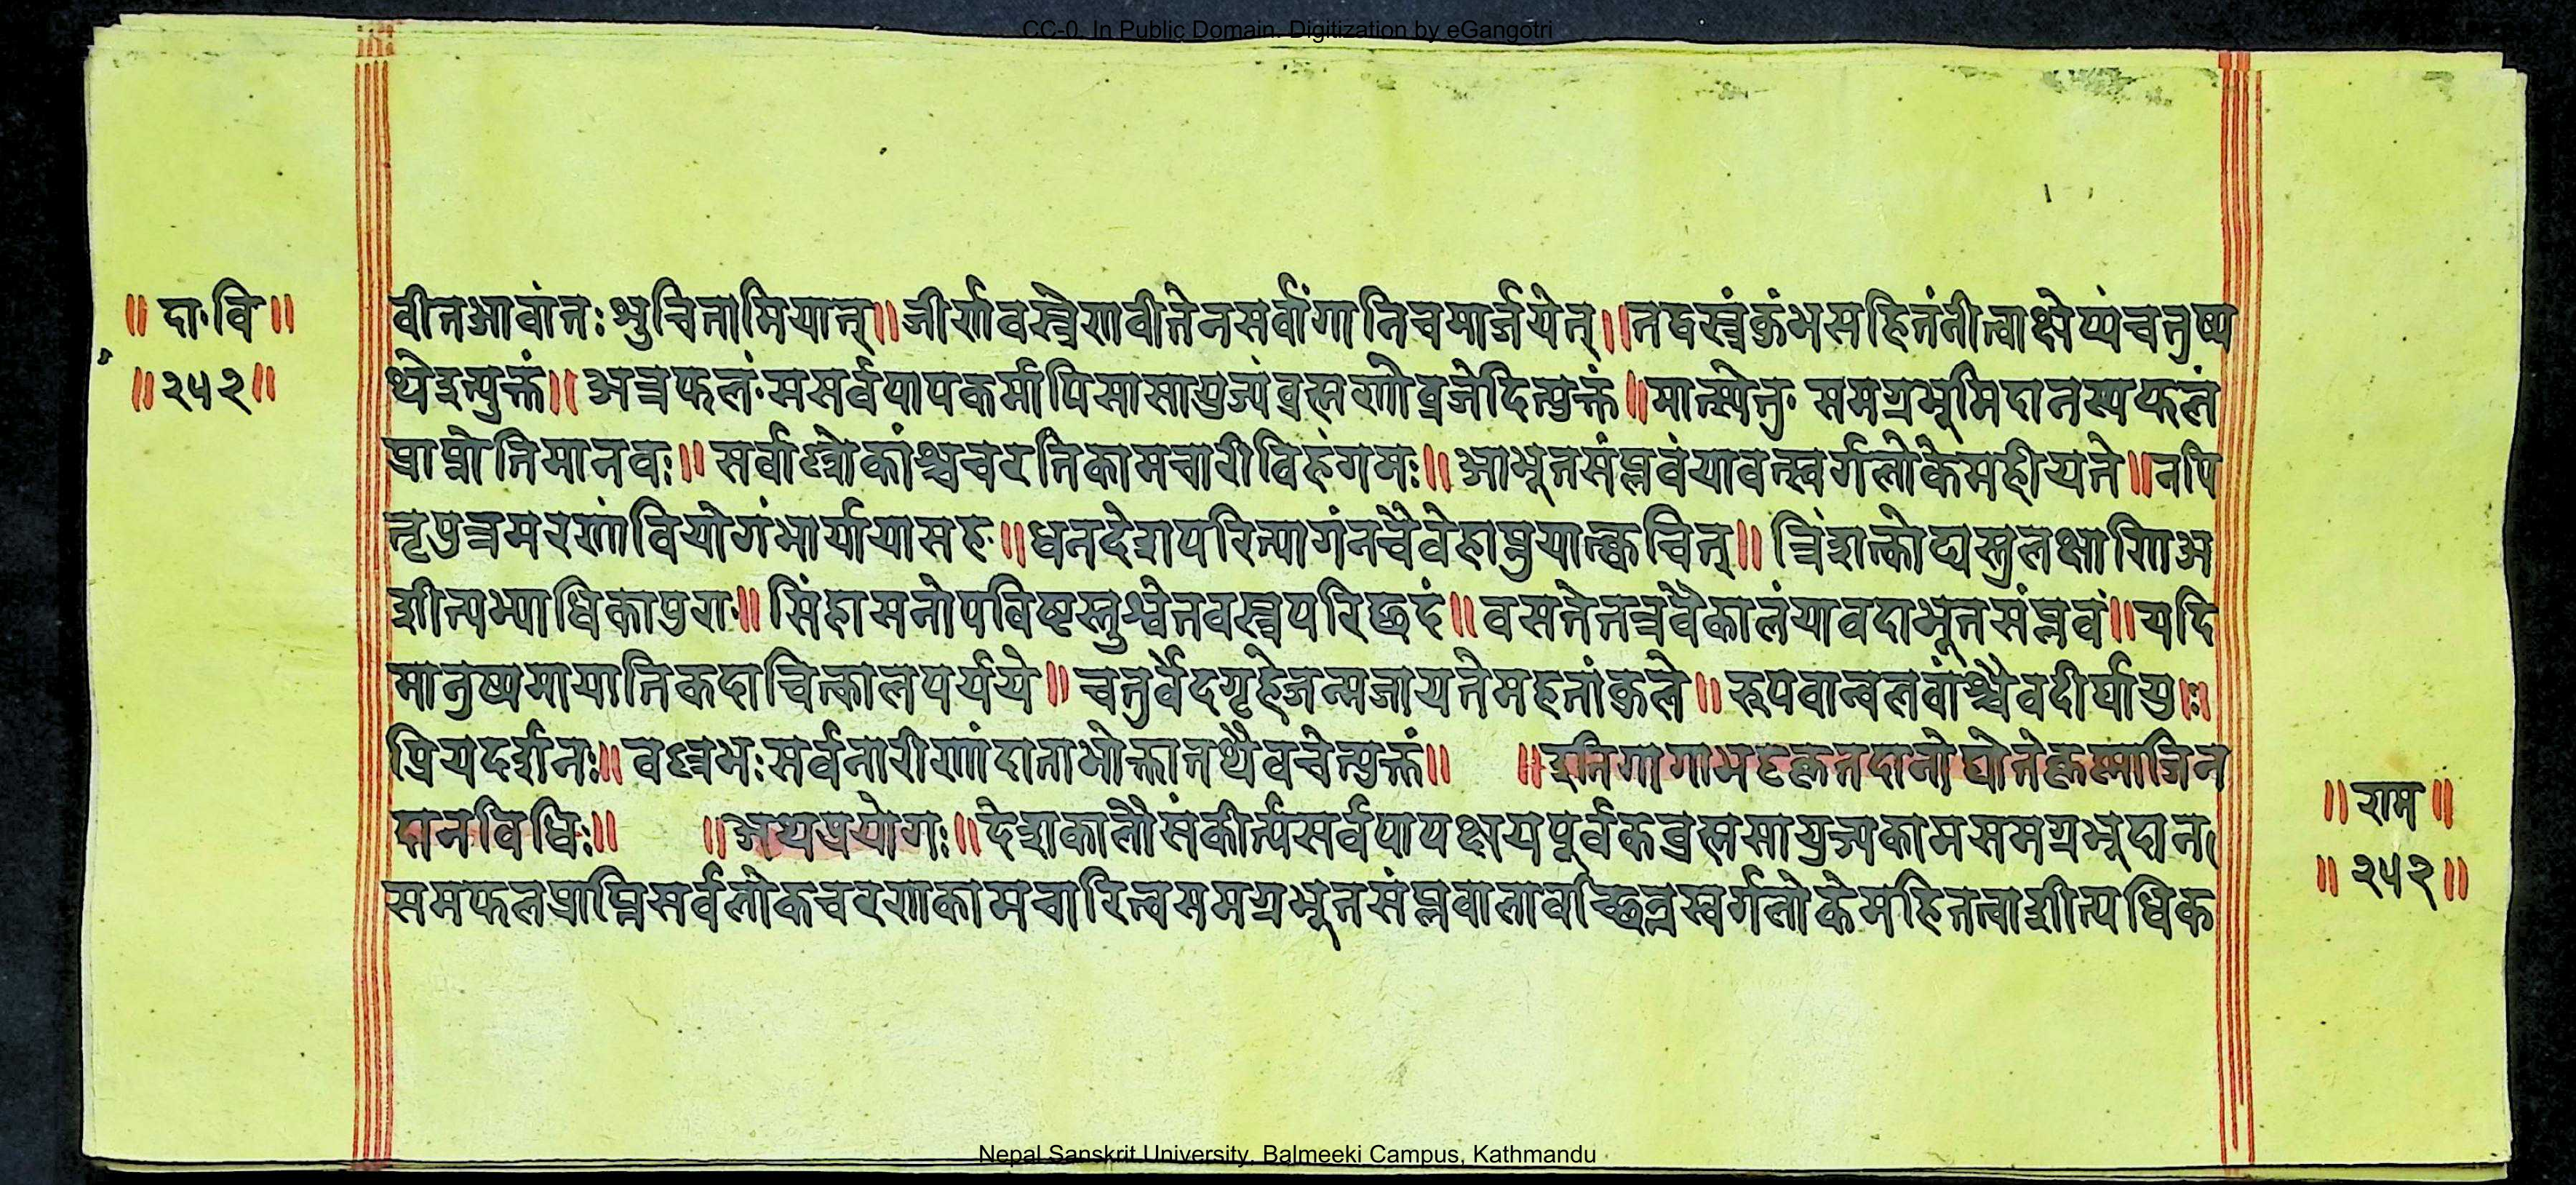 CC-0. In Public Domain. Digitization by eGangotri
॥ दा॰ वि ॥
॥ २५२ ॥
वीतआवांतः श्रुचितामियात् ॥ जीर्णवस्त्रैणवीतेनसर्वांगानिचमार्जयेत् ॥ तद्वस्त्रंकुंभसहितंनीत्वाक्षेप्यंचतुष्प
थेइत्युक्तं ॥ अत्रफलं॰मसर्वपापकर्मापिसासायुज्यंब्रह्मणोव्रजेदित्युक्तं ॥ मात्स्येतु॰ समग्रभूमिदानस्यफलं
प्राप्नोतिमानवः ॥ सर्वाल्लोकांश्चचरतिकामचारीविहंगमः ॥ आभूतसंप्लवंयावत्स्वर्गलोकेमहीयते ॥ नपि
तृपुत्रमरणंवियोगंभार्यायासह॰ ॥ धनदेशपरित्यागंनचैवेहाप्नुयात्क्वचित् ॥ त्रिंशत्कोट्यस्तुलक्षाणिअ
शीत्यभ्याधिकापुराः ॥ सिंहासनोपविष्टस्तुश्वेतवस्त्रपरिछदं ॥ वसतेतत्रवैकालंयावदाभूतसंप्लवं ॥ यदि
मानुष्यमायातिकदाचित्कालपर्यये ॥ चतुर्वेदगृहेजन्मजायतेमहतांकुले ॥ रूपवान्वलवांश्चैवदीर्घायुः।
प्रियदर्शनः ॥ वल्लभःसर्वनारीणांदाताभोक्तातथैवचेत्युक्तं ॥ ॥ इतिगागाभट्टकृतदानोद्योतेकृष्णाजिन
दानविधिः ॥ ॥ अथप्रयोगः ॥ देशकालौसंकीर्त्यसर्वपापक्षयपूर्वकब्रह्मसायुज्यकामसमग्रभूदान
समफलप्राप्तिसर्वलोकचरणकामचारित्वसमग्रभूतसंप्लवालावच्छिन्नस्वर्गलोकेमहितत्वाशीत्यधिक
॥ राम ॥
॥ २५२ ॥
Nepal Sanskrit University, Balmeeki Campus, Kathmandu